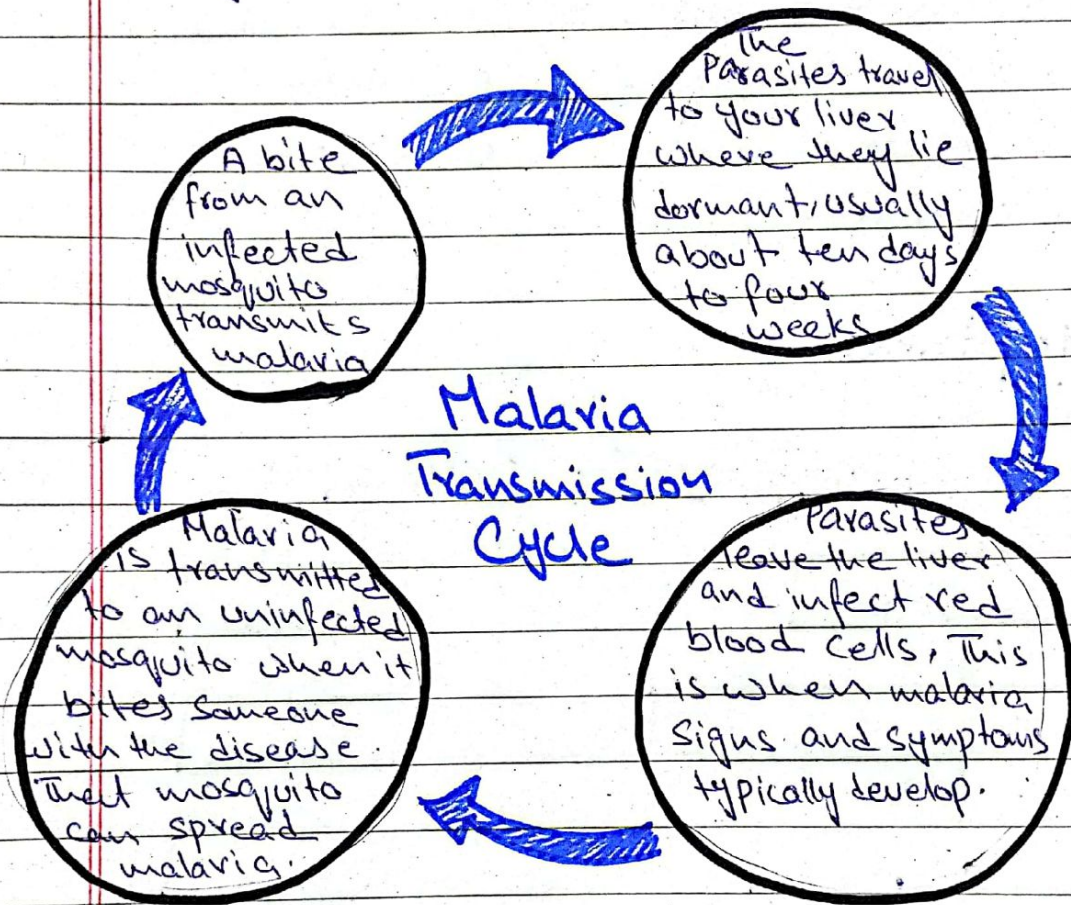 A bite
from an
infected
mosquito
transmits
malaria
The
Parasites travel
to your liver
where they lie
dormant, usually
about ten days
to four
weeks
Malaria
Transmission
Cycle
Parasites
leave the liver
and infect red
blood cells, This
is when malaria
signs and symptoms
typically develop.
Malaria
is transmitted
to an uninfected
mosquito when it
bites someone
with the disease.
That mosquito
can spread
malaria.